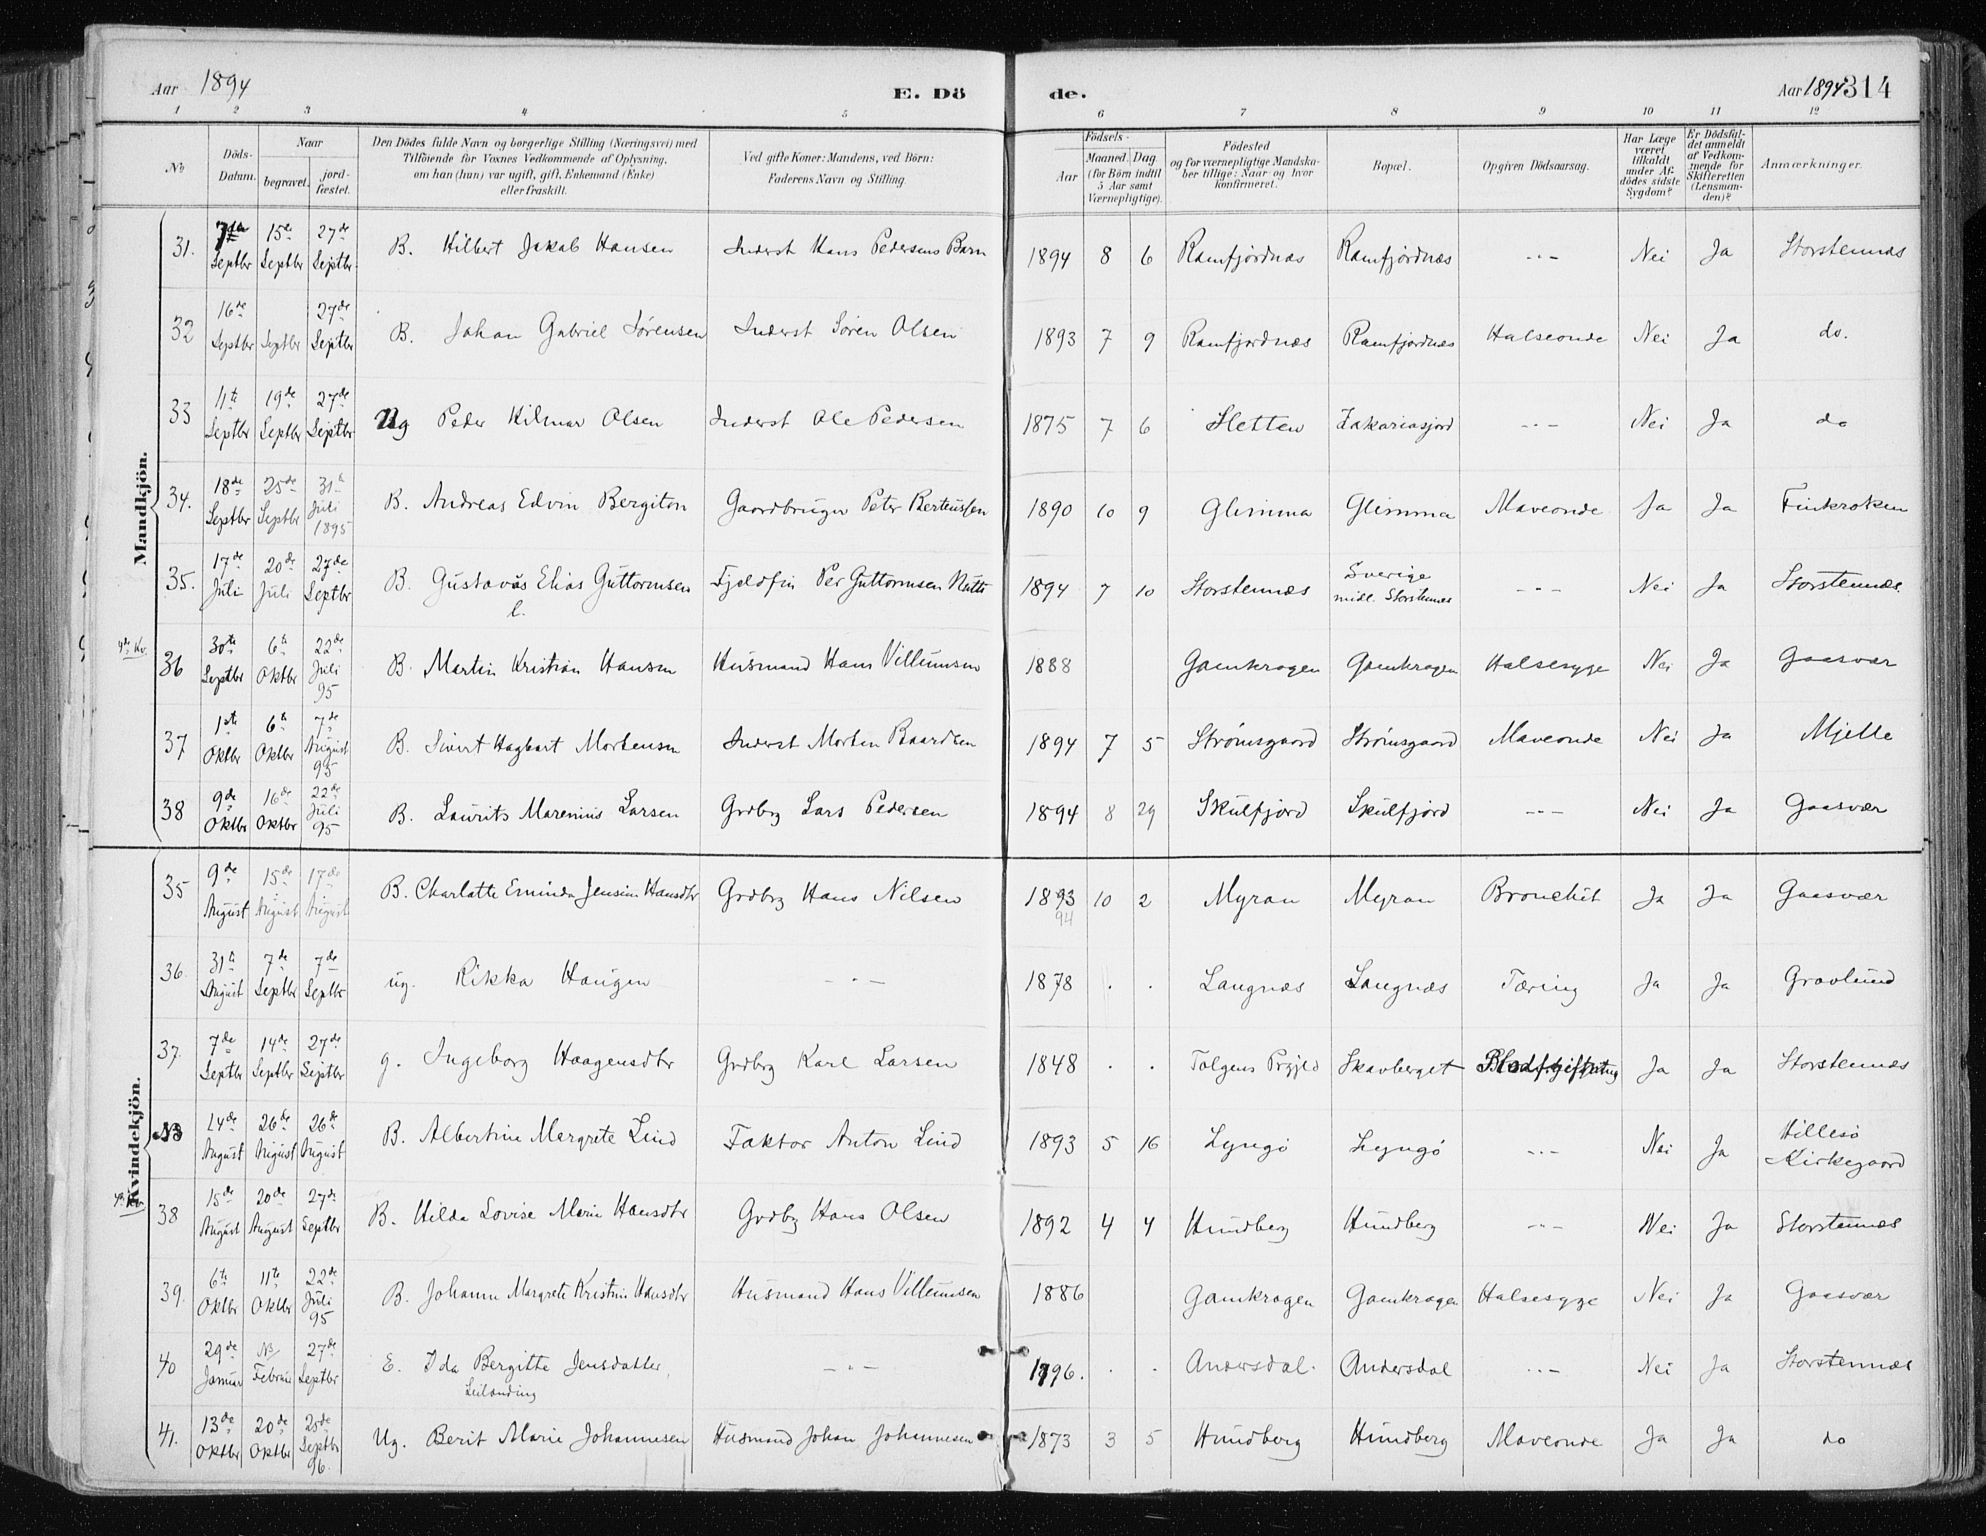 Aar 1894 E. Dö de. Aar 1894 314
1 2 3 4 5 6 7 8 9 10 11 12
No Döds-Datum. Naar begravet. jord-fæstet. Den Dödes fulde Navn og borgerlige Stilling (Næringsvei) med Tilföiende for Voxnes Vedkommende af Oplysning, om han (hun) var ugift, gift, Enkemand (Enke) eller fraskilt. Ved gifte Koner: Mandens, ved Börn: Faderens Navn og Stilling. Födsels- Aar Maaned. Dag (for Börn indtil 5 Aar samt Værnepligtige). Födested og for værnepligtige Mandskaber tillige: Naar og hvor konfirmeret. Bopæl. Opgiven Dödsaarsag. Har Læge været tilkaldt under Afdödes sidste Sygdom? Er Dödsfaldet anmeldt af Vedkommende for Skifteretten (Lensmanden)? Anmærkninger.
Mandkjön.
31. 7de Septbr 15de Septbr 27de Septbr. B. Hilbert Jakob Hansen Inderst Hans Pedersens Barn 1894 8 6 Ramfjordnæs Ramfjordnæs -"- Nei Ja Storstennæs
32 16de Septbr Septbr 27de Septbr B. Johan Gabriel Sørensen Inderst Søren Olsen 1893 7 9 Ramfjordnæs Ramfjordnæs Halseonde Nei Ja do.
33 11te Septbr 19de Septbr 27de Septbr Ug Peder Hilmar Olsen Inderst Ole Pedersen 1875 7 6 Sletten Zakariasjord -"- Nei Ja do
34. 18de Septbr 25de Septbr 31te Juli 1895 B. Andreas Edvin Bergiton Gaardbruger Peter Berteussen 1890 10 9 Glimma Glimma Maveonde Ja Ja Finkroken
35. 17de Juli 20de Juli 27de Septbr B. Gustavus Elias Guttormsen Fjeldfin Per Guttormsen Nutti 1894 7 10 Storstennæs Sverige midl. Storstennæs -"- Nei Ja Storstennæs.
4de Kv. 36 30te Septbr 6te Oktbr 22de Juli 95 B. Martin Kristian Hansen Husmand Hans Villumsen 1888 Gamkrogen Gamkrogen Halsesyge Nei Ja Gaasvær
37 1ste Oktbr 6te Oktbr 7de August 95 B. Sivert Hagbart Mortensen Inderst Morten Baardsen 1894 7 5 Strømsgaard Strømsgaard Maveonde Nei Ja Mjelle
38 9de Oktbr 16de Oktbr 22de Juli 95 B. Laurits Marenius Larsen Grdbrg Lars Pedersen 1894 8 29 Skulfjord Skulfjord -"- Nei Ja Gaasvær
Kvindekjön.
35 9de August 15de August 17de August B. Charlotte Eminda Jensine Hansdtr Grdbrg Hans Nilsen 1893 94 10 2 Myran Myran Bronchit Ja Ja Gaasvær
36. 31te August 7de Septbr 7de Septbr ug. Rikka Haugen -"- 1878 . . Langnæs Langnæs Tæring Ja Ja Gravlund
37. 7de Septbr 14de Septbr 27de Septbr g. Ingeborg Haagensdtr Grdbrg Karl Larsen 1848 . . Tolgens Prgjld Skavberget Blodforgiftning Ja Ja Storstennæs
14de August 26de August 26de August B. Albertine Margrete Lind Faktor Anton Lind 1893 5 16 Lyngø Lyngø -"- Nei Ja Hillesø Kirkegaard
38 15de August 20de August 27de Septbr B. Hilda Lovise Marie Hansdtr Grdbrg Hans Olsen 1892 4 4 Hundberg Hundberg -"- Nei Ja Storstennæs
39. 6te Oktbr 11te Oktbr 22de Juli 95 B. Johanne Margrete Kristine Hansdtr Husmand Hans Villumsen 1886 Gamkrogen Gamkrogen Halsesyge Nei Ja Gaasvær
40 29de Januar Februar 27de Septbr E. Ida Bergitte Jensdatter, Leilending -"- 1796. . . Andersdal. Andersdal -"- Nei Ja Storstennæs
41. 13de Oktbr 20de Oktbr 25de Septbr 96. Ug. Berit Marie Johannesen Husmand Johan Johannesen 1873 3 5 Hundberg Hundberg Maveonde Ja Ja do